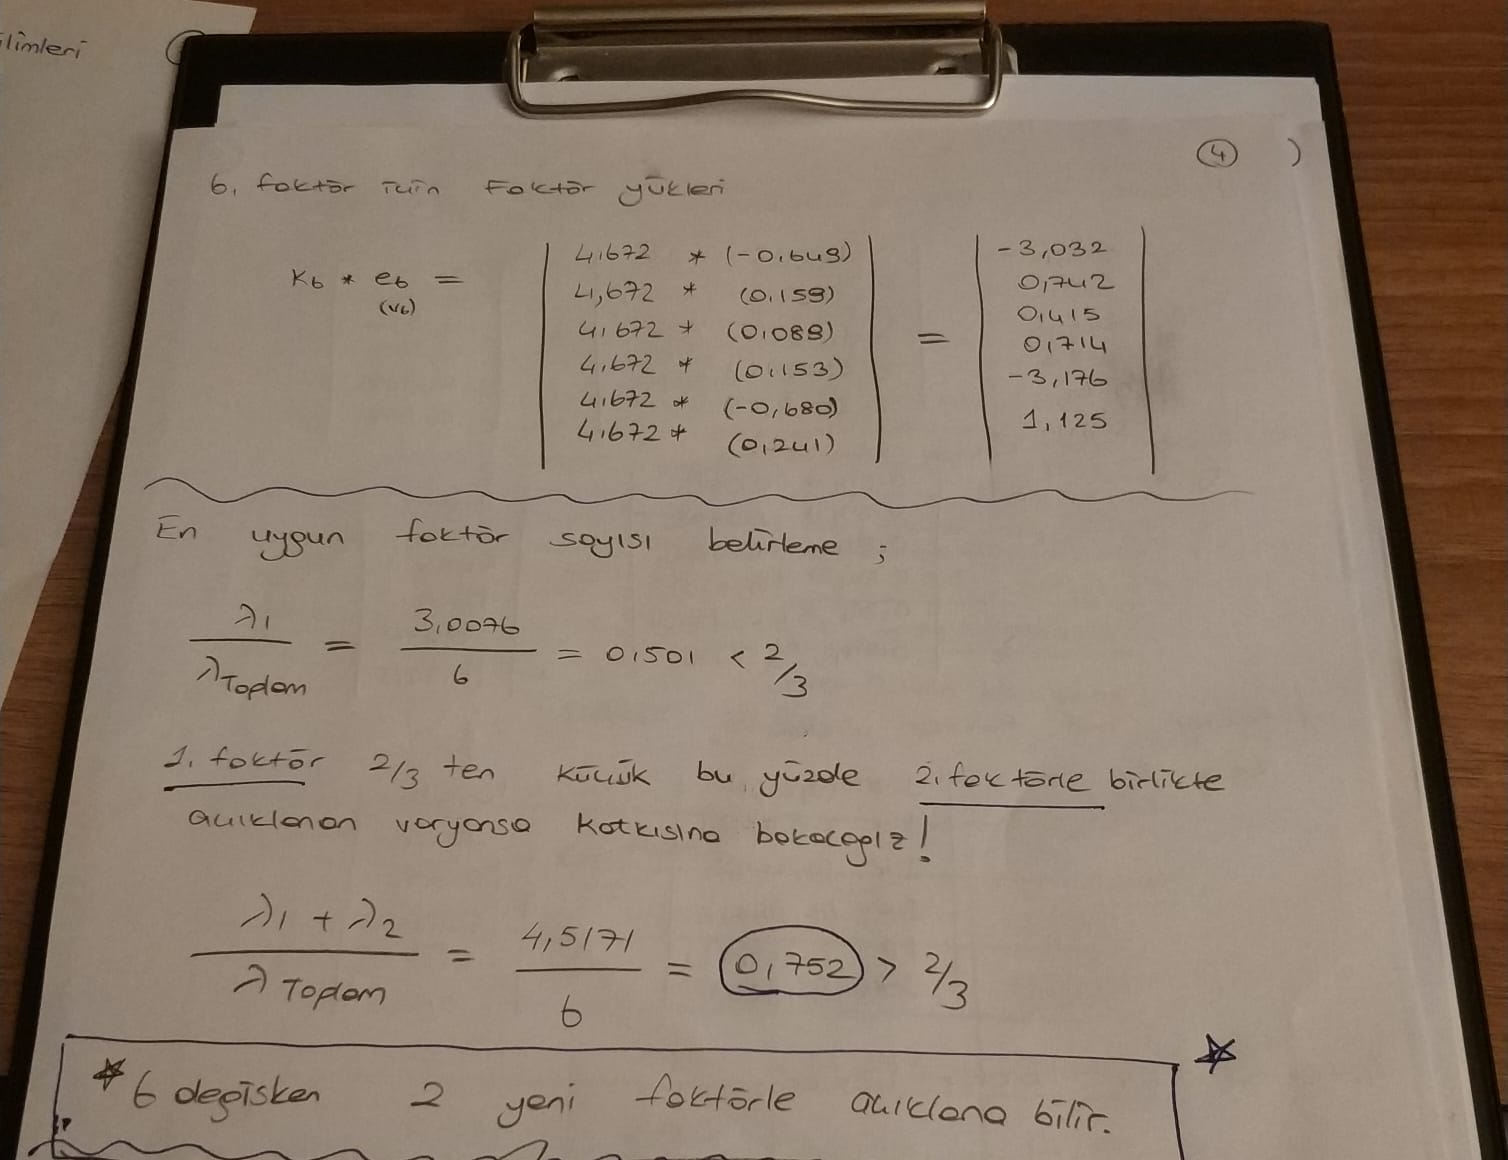 ilimleri
4 )
6. faktör için Faktör yükleri
K6 * e6 = (v6)
4,672 * (-0,649)
4,672 * (0,159)
4,672 * (0,089)
4,672 * (0,153)
4,672 * (-0,680)
4,672 * (0,241)
=
-3,032
0,742
0,415
0,714
-3,176
1,125
En uygun faktör sayısı belirleme ;
λ1 / λToplam = 3,0076 / 6 = 0,501 < 2/3
1. faktör 2/3 ten küçük bu yüzde 2. faktörle birlikte
açıklanan varyansa katkısına bakacağız!
λ1 + λ2 / λToplam = 4,5171 / 6 = 0,752 > 2/3
* 6 değişken 2 yeni faktörle açıklana bilir.